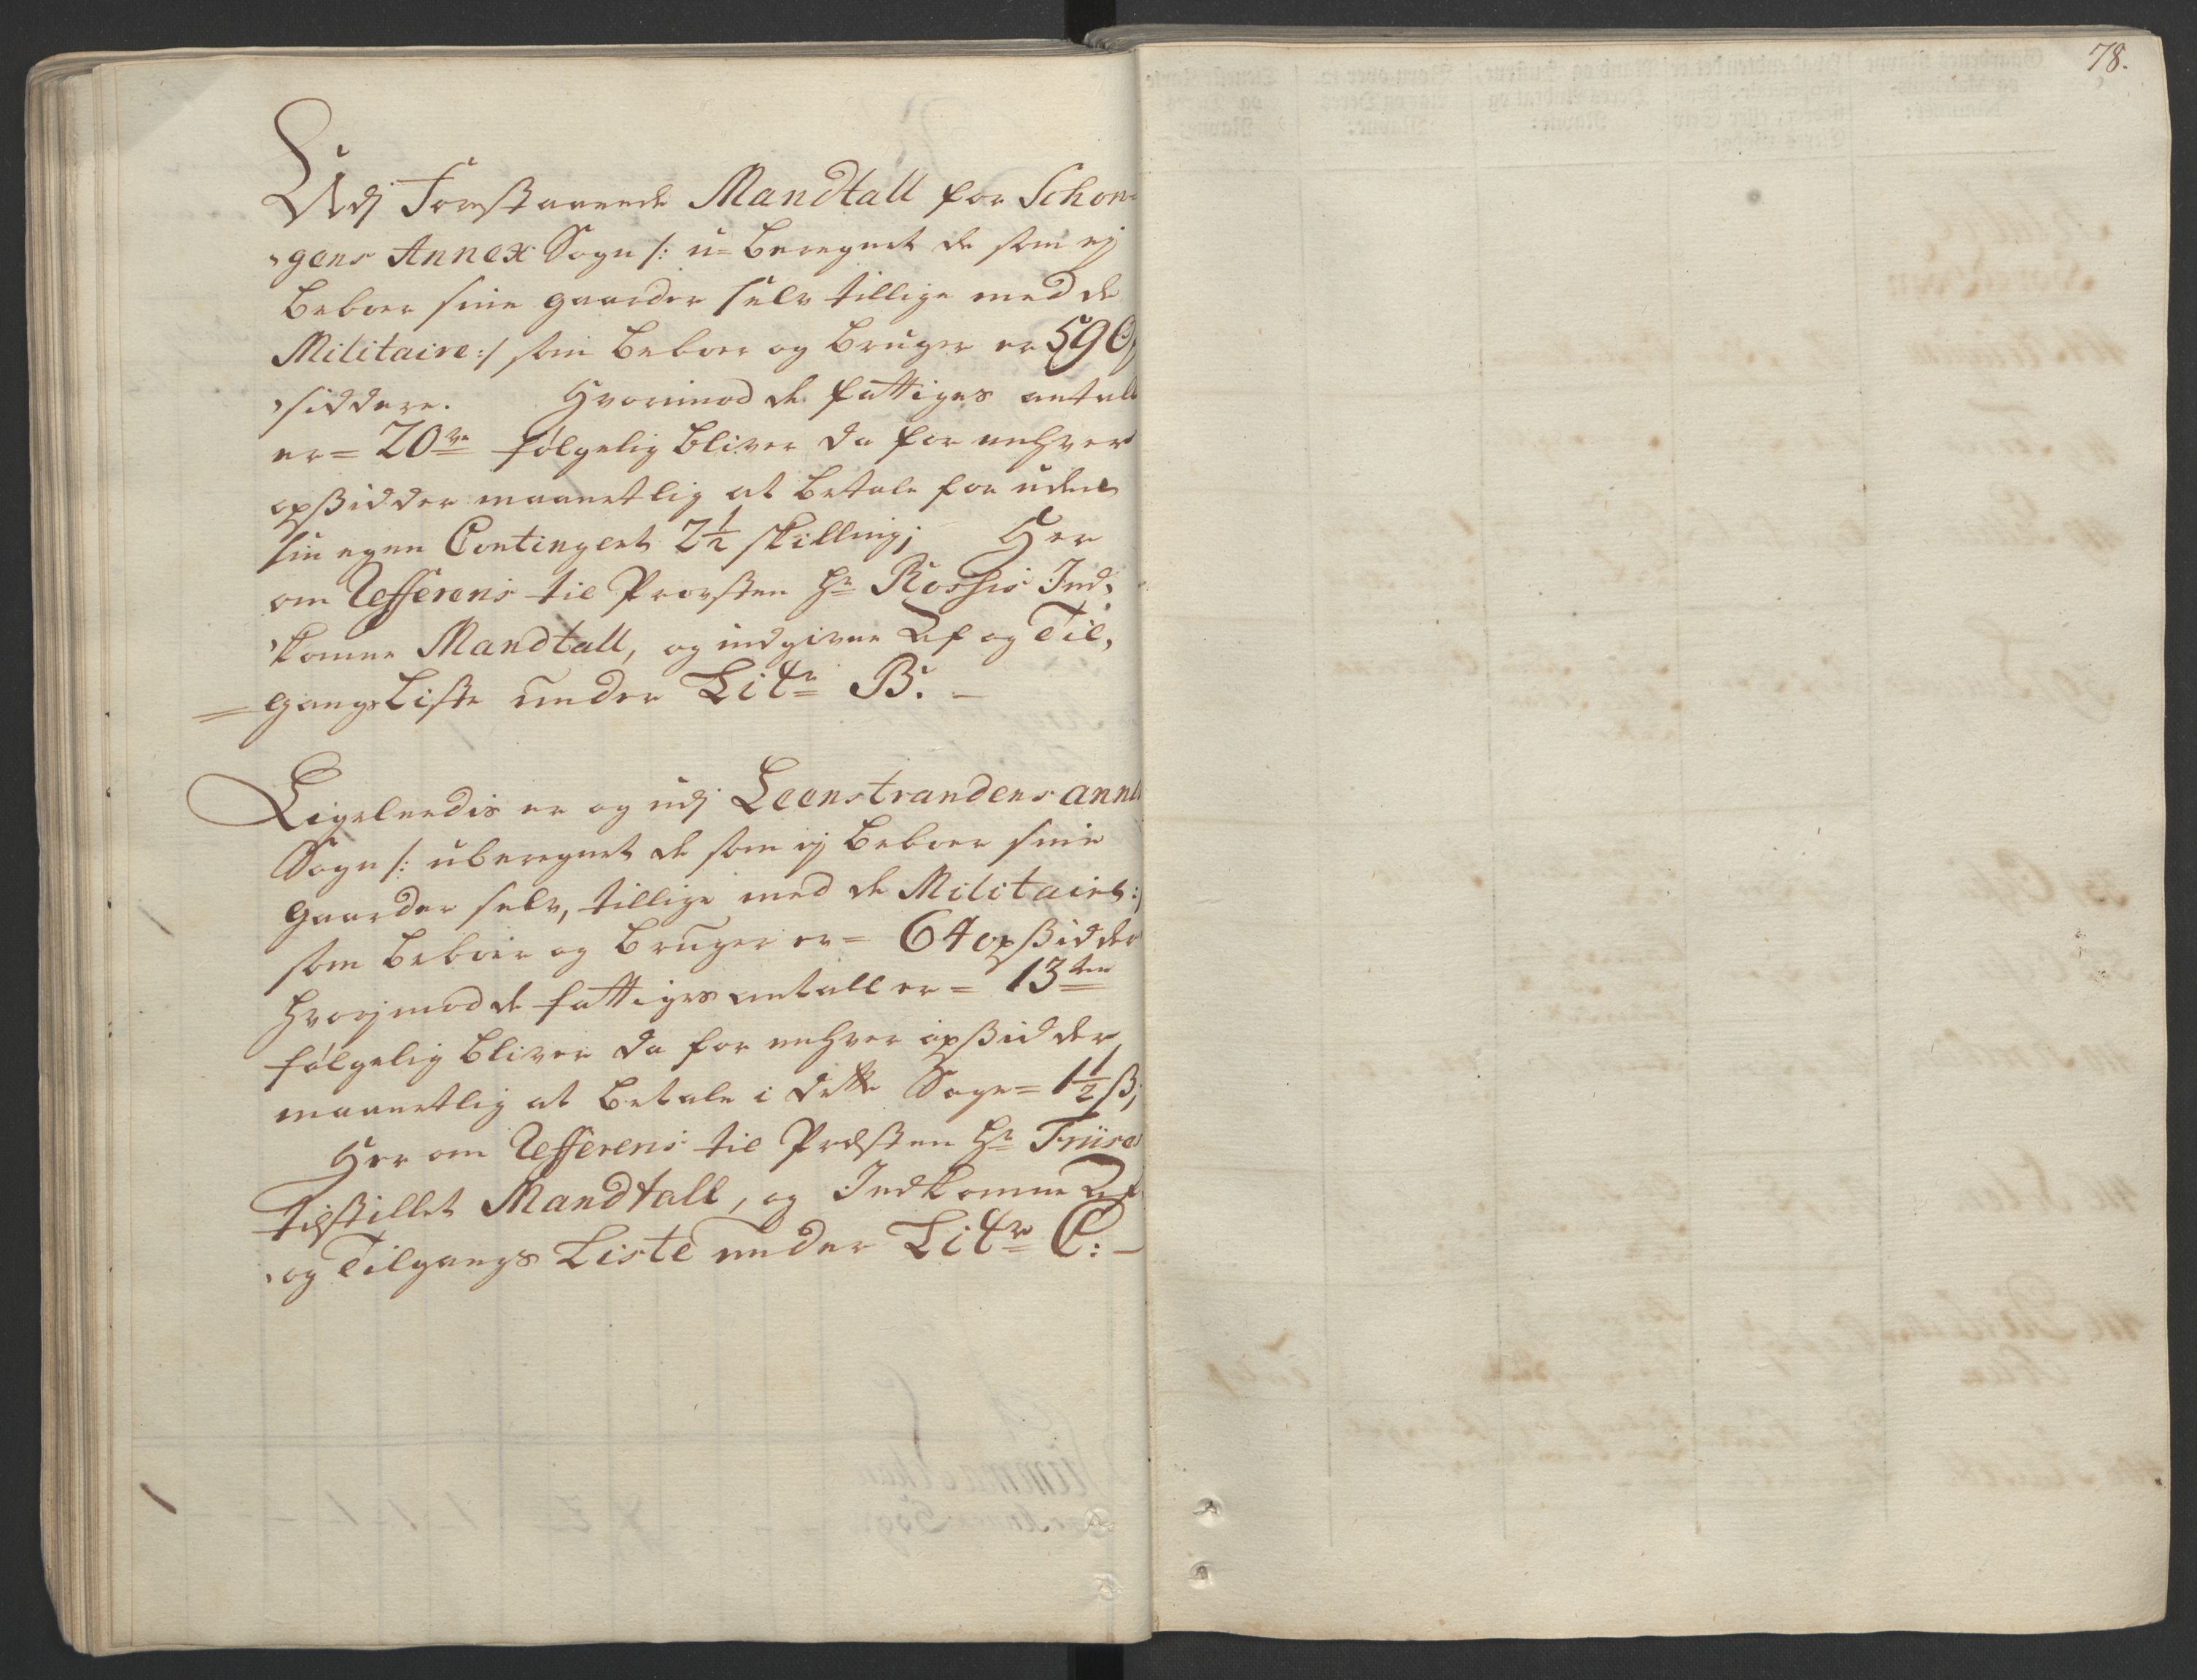 78.
Udj Forestaaende Mandtall for Schon-
gens Annex Sogn /: u-beregnet de som ej
beboer sine gaarder selv tillige med de
Militaire :/ som beboer og bruger er 59 O
siddere. Hvorimod de fattiges antall
er = 20ve følgelig bliver da for enhver
opsidder maanetlig at betale for uden
sin egen Contingent 2½ skilling; Her
om Refferens til Provsten Hr Rosfis Ind-
komne Mandtall, og indgivne Af og Til-
gangs Liste under Litr B. –
Ligeleedis er og udj Leenstrandens ann
Sogn /: uberegnet de som ej beboer sine
gaarder selv, tillige med de Militaire :/
som beboer og bruger er = 64 opsidder
hvorjmod de fattiges antall er = 13ten
følgelig bliver da for enhver opsidder
maanetlig at betale i dette Sogn = 1½ ß;
Her om Refferens til Præsten Hr Friises
tilstillet Mandtall, og Indkomne Af
og Tilgangs Liste under Litr C: –